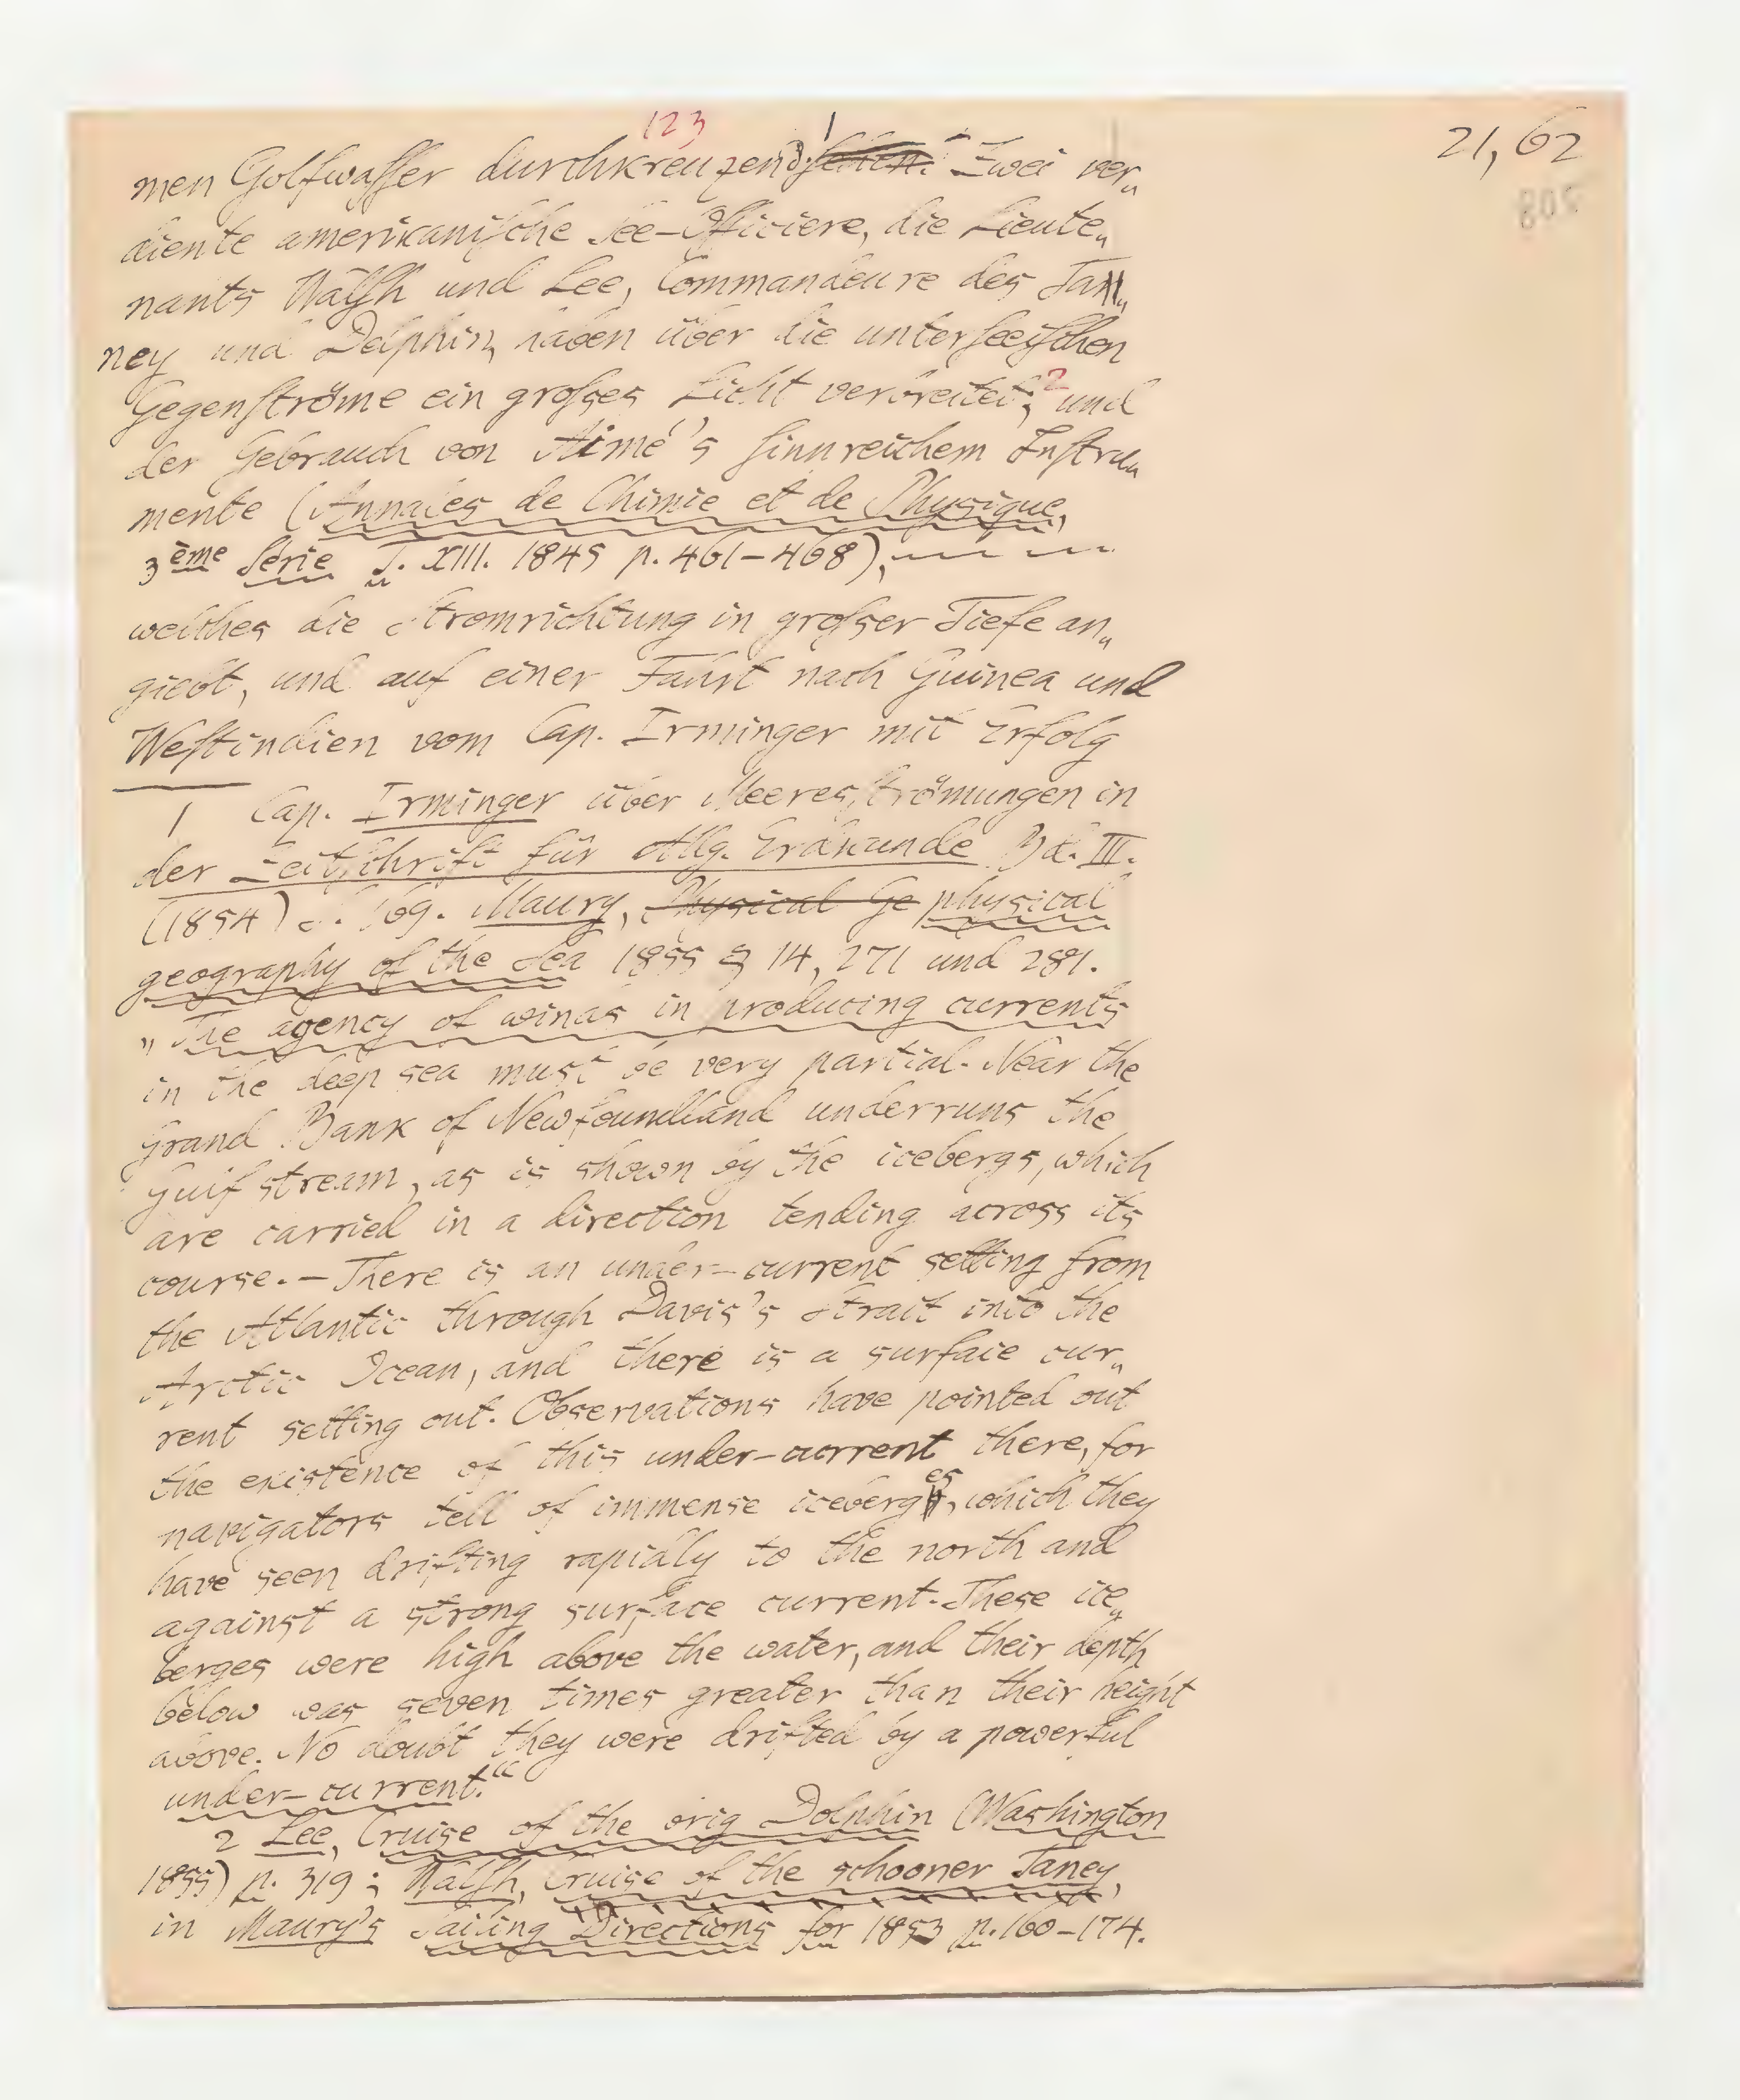 123
21, 62
208
men Golfwaſſer durchkreuzend. 1 Zwei ver„
diente amerikaniſche See-Officiere, die Lieute„
nants Walſh und Lee, Commandeure des Tan„
ney und Delphin, haben über die unterſeeiſchen
Gegenſtröme ein groſses Licht verbreitet; 2 und
der Gebrauch von Aimé's ſinnreichem Inſtru„
mente (Annales de Chimie et de Physique,
3ème Série T. XIII. 1845 p. 461-468),
welches die Stromrichtung in groſser Tiefe an„
giebt, und auf einer Fahrt nach Guinea und
Weſtindien vom Cap. Irminger mit Erfolg
1 Cap. Irminger über Meeresſtrömungen in
der Zeitſchrift für Allg. Erdkunde Bd. III.
(1854) S. 169. Maury, Physical Ge physical
geography of the Sea 1855 § 14, 271 und 281.
„The agency of winds in producing currents
in the deep sea must be very partial. Near the
Grand Bank of Newfoundland underruns the
Gulf stream, as is shown by the icebergs, which
are carried in a direction tending across its
course. - There is an under-current setting from
the Atlantic through Davis's Strait into the
Arctic Ocean, and there is a surface cur„
rent setting out. Observations have pointed out
the existence of this under-current there, for
navigators tell of immense iceberges, which they
have seen drifting rapidly to the north and
against a strong surface current. These ice„
berges were high above the water, and their depth
below was seven times greater than their height
above. No doubt they were drifted by a powerful
under-current.“
2 Lee, Cruise of the brig Dolphin (Washington
1855) p. 319; Walſh, Cruise of the schooner Taney,
in Maury's Sailing Directions for 1853 p. 160-174.